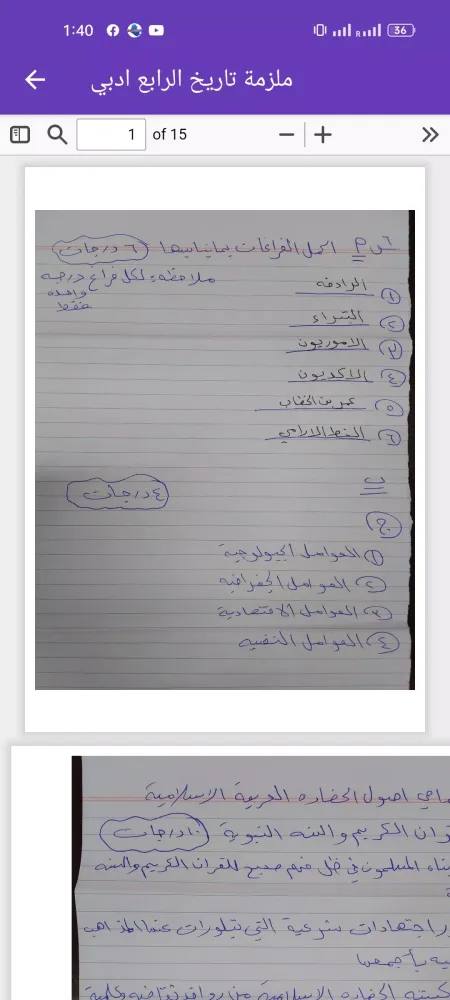 1:40
36
ملزمة تاريخ الرابع ادبي
1 of 15
س٢ م اكمل الفراغات بما يناسبها (٦ درجات)
ملاحظة: لكل فراغ درجه
واحده
فقط
١ الرادفه
٢ البتراء
٣ الاموريون
٤ الاكديون
٥ عمر بن الخطاب
٦ الخط الارامي
ب
٤ درجات
ج
١ العوامل الجيولوجية
٢ العوامل الجغرافيه
٣ العوامل الاقتصادية
٤ العوامل النفسيه
ماهي اصول الحضاره العربية الاسلامية
القران الكريم والسنه النبوية (١٠ درجات)
المسلمون في ظل فهم صحيح للقران الكريم والسنه
اجتهادات شرعية التي تبلورات عنها المذاهب
بأجمعها
الحضاره الاسلامية من روافد ثقافيه